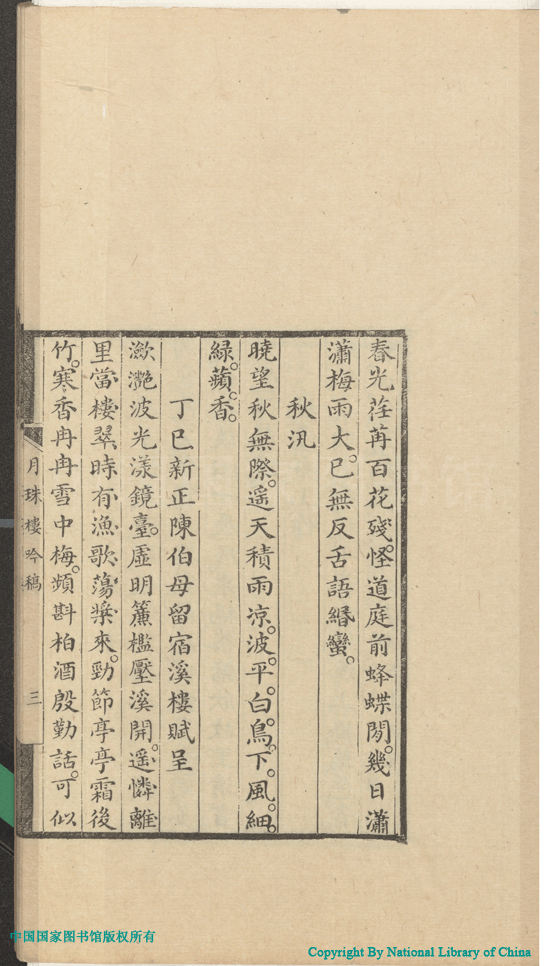 春光荏苒百花殘。怪道庭前蜂蝶閒。幾日瀟
瀟梅雨大。已無反舌語緡蠻。
秋汛
曉望秋無際。遥天積雨凉。波平白鳥下。風細
緑蘋香。
丁巳新正陳伯母留宿溪樓賦呈
瀲灔波光漾鏡臺。虛明簾檻壓溪開。遥憐離
里當樓翠。時有漁歌蕩槳來。勁節亭亭霜後
竹。寒香冉冉雪中梅。頻斟柏酒殷勤話。可似
月珠樓吟稿 三
中国国家图书馆版权所有
Copyright By National Library of China